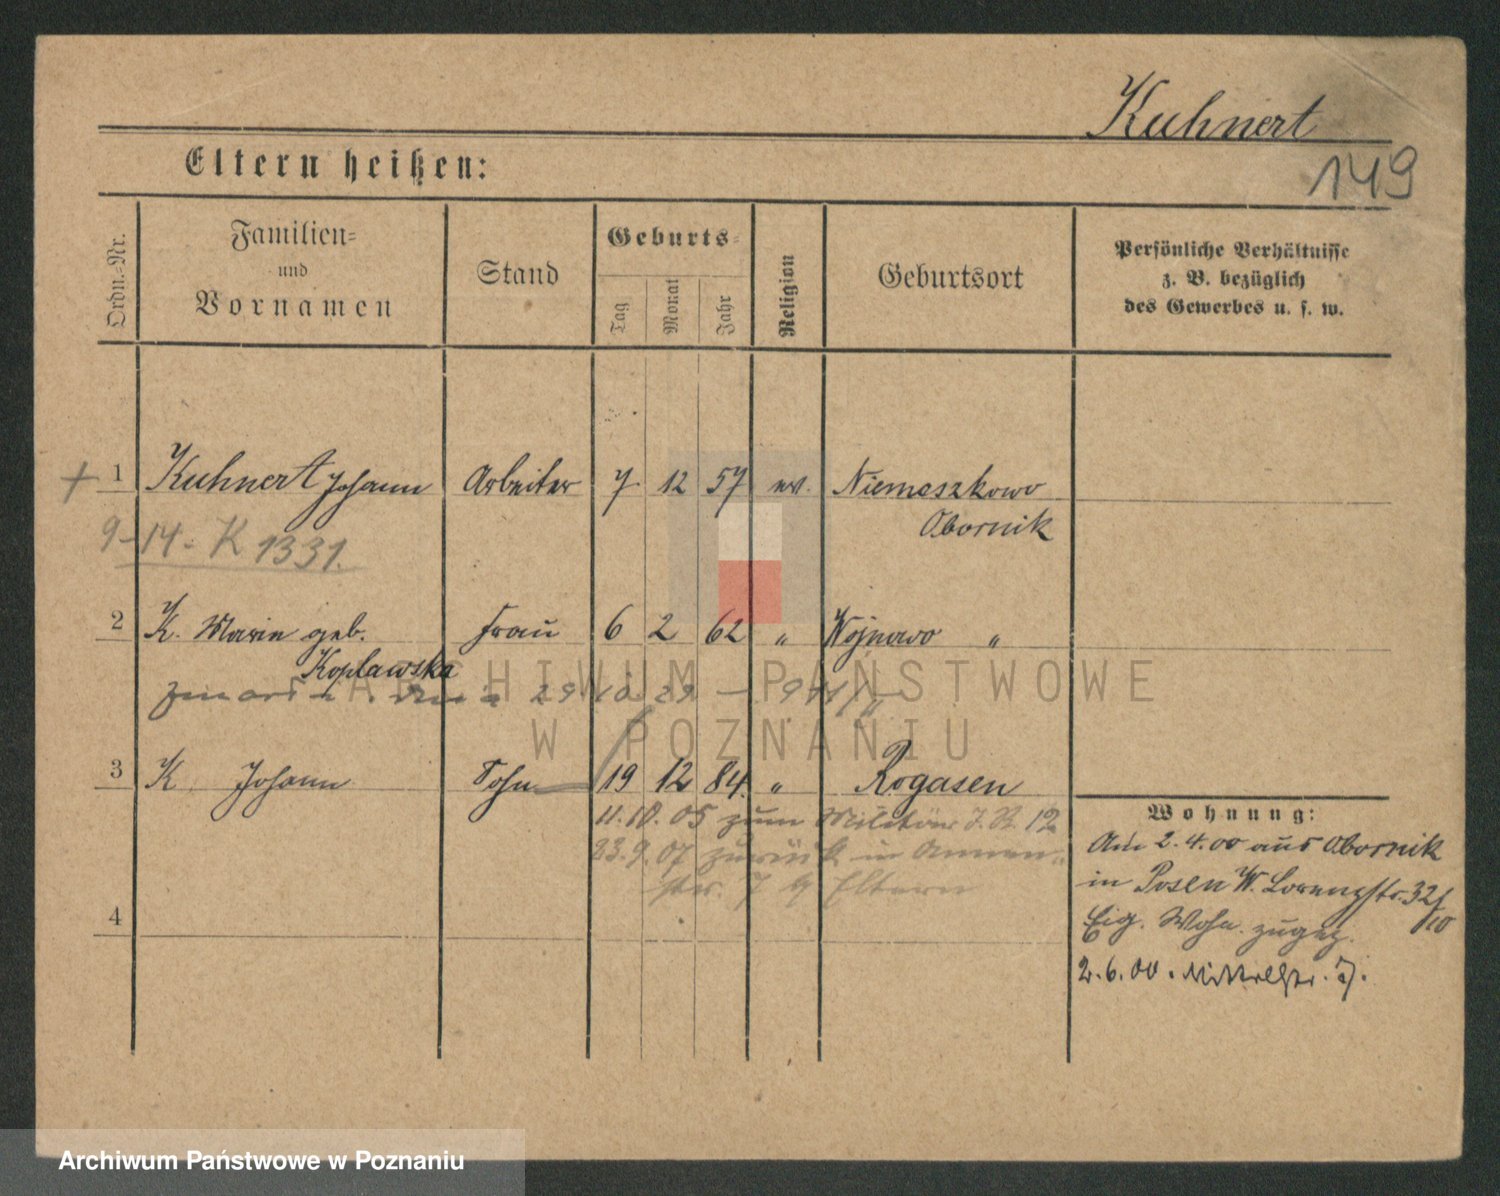 Kuhnert
149
Eltern heißen:
Ordn.-Nr.
Familien-
und
Vornamen
Stand
Geburts-
Tag
Monat
Jahr
Religion
Geburtsort
Persönliche Verhältnisse
z. B. bezüglich
des Gewerbes u. s. w.
+ 1 Kuhnert Johann Arbeiter 7. 12 57 ev. Niemeszkowo
Obornik
9-14- K 1331.
2 K. Marie geb. Frau 6 2 62 " Wojnowo "
Koplawska
29. 10. 29
3 K. Johann Sohn 19 12 84. " Rogasen
11. 10. 05 zum Militär J. R. 12
23. 9. 07 zurück in Annen-
str. 7 b Eltern
4
Wohnung:
Am 2. 4. 00 aus Obornik
in Posen W. Lorenzstr. 32/
10
Eig. Wohn. zugez.
2. 6. 00. Mittelstr. 7.
ARCHIWUM PAŃSTWOWE
W POZNANIU
Archiwum Państwowe w Poznaniu